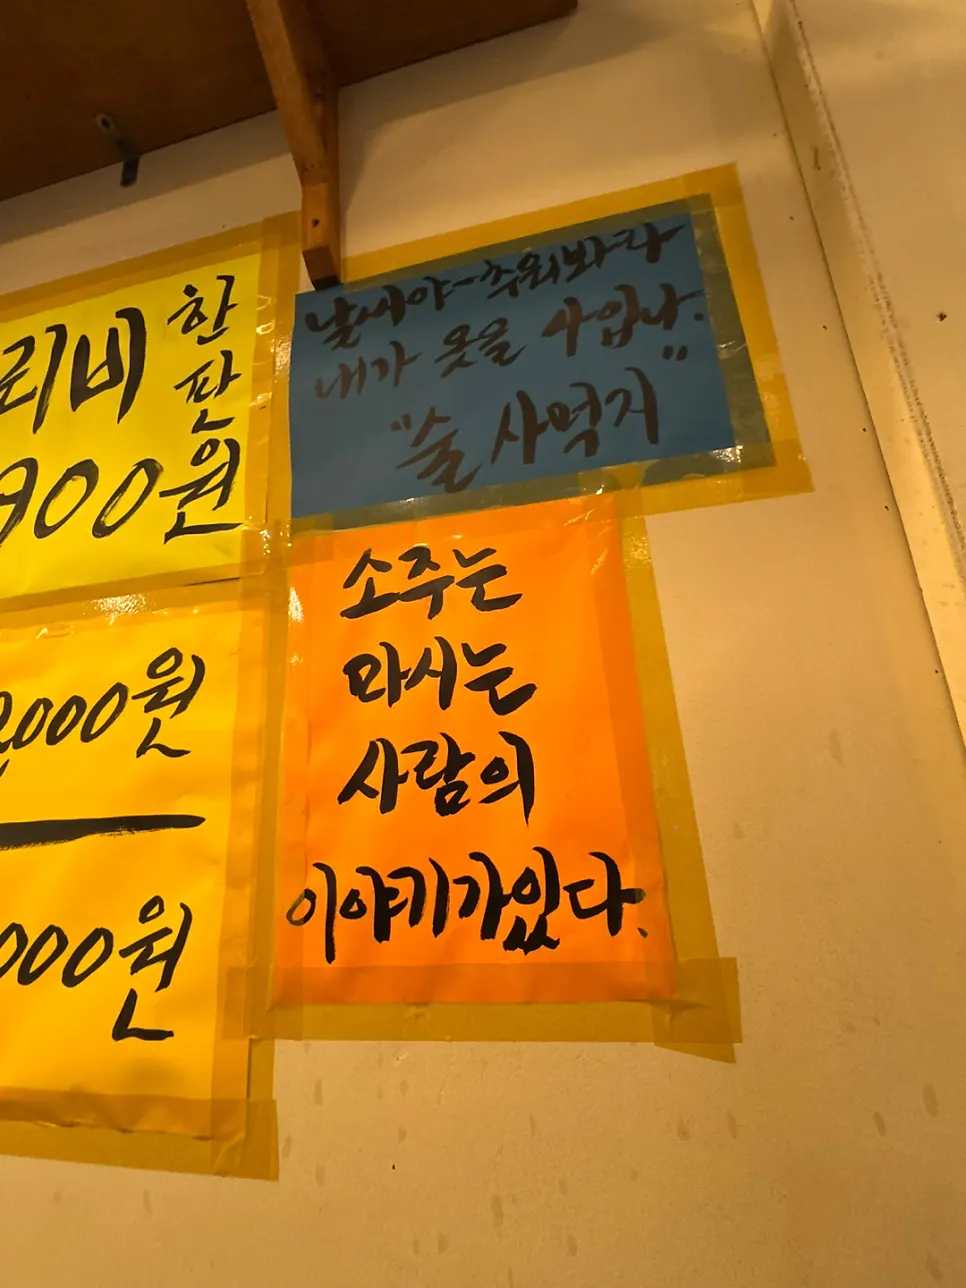 리비 한
판
900원
날씨야~추워봐라
내가 옷을 사입나.
"술 사먹지"
소주는
마시는
사람의
이야기가있다.
,000원
000원